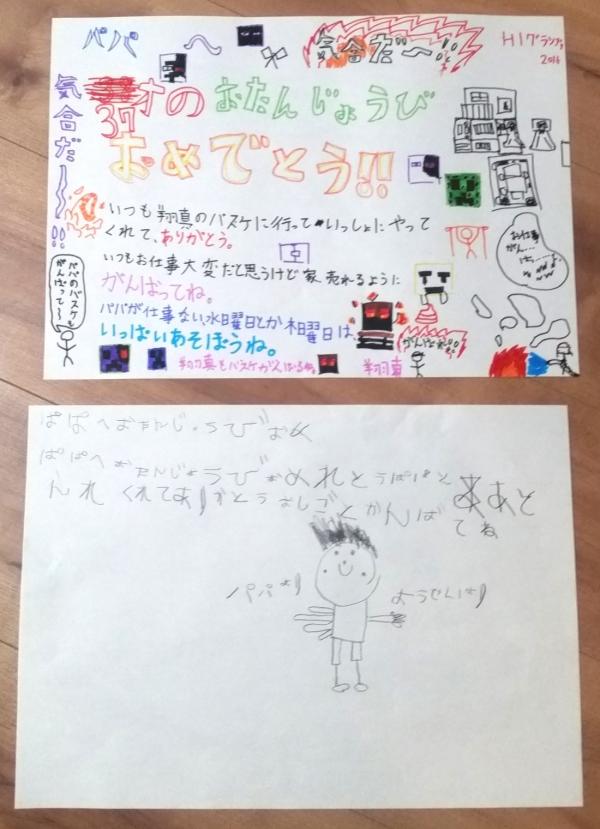 パパへ
気合だ〜!!
H1グランプリ
2016
気合だ〜〜!!
37才のおたんじょうび
おめでとう!!
いつも翔真のバスケに行っていっしょにやって
くれて、ありがとう。
いつもお仕事大変だと思うけど家売れるように
がんばってね。
パパが仕事ない、水曜日とか木曜日は、
いっぱいあそぼうね。
翔真もバスケがんばるね。
翔真
パパのバスケも
がんばって〜
お仕事
がん…
ば…
がんばれ!!
ぱぱへおたんじょうびおめ
ぱぱへおたんじょうびおめれとうぱぱと
んれくれてありがとうおしごとがんば
あとあと
てね
パパより
ようせいより